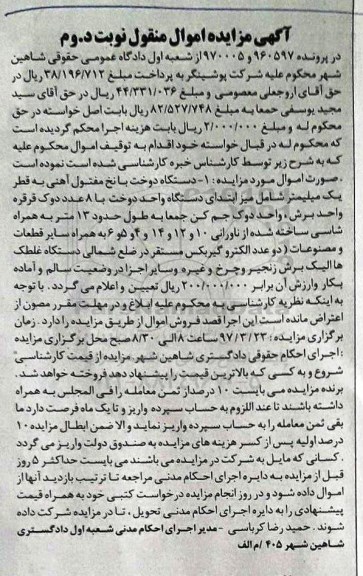 آگهی مزایده اموال منقول نوبت دوم
در پرونده ۹۶۰۵۹۷ و ۹۷۰۰۰۵ از شعبه اول دادگاه عمومی حقوقی شاهین
شهر محکوم علیه شرکت پوشینگر به پرداخت مبلغ ۳۸/۱۹۶/۷۱۲ ریال در
حق آقای اروجعلی معصومی و مبلغ ۴۴/۳۳۱/۰۳۶ ریال در حق آقای سید
مجید یوسفی جمعا به مبلغ ۸۲/۵۲۷/۷۴۸ ریال بابت اصل خواسته در حق
محکوم له و مبلغ ۲/۰۰۰/۰۰۰ ریال بابت هزینه اجرا محکوم گردیده است
که محکوم له در قبال خواسته خود اقدام به توقیف اموال محکوم علیه
که به شرح زیر توسط کارشناس خبره کارشناسی شده است نموده است
. صورت اموال مورد مزایده : ۱- دستگاه دوخت با نخ مفتول آهنی به قطر
یک میلیمتر شامل میز ابتدای دستگاه واحد دوخت با ۸ عدد دوک قرقره
واحد برش ، واحد دوک جم کن جمعا به طول حدود ۱۳ متر به همراه
شاسی ساخته شده از ناورانی ۱۰ و ۱۲ و ۱۴ و ۴ و ۵ و ۶ به همراه سایر قطعات
و مصنوعات ( دو عدد الکترو گیربکس مستقر در ضلع شمالی دستگاه غلطک
ها الیک برش زنجیر و چرخ و غیره وسایر اجزا در وضعیت سالم و آماده
بکار وارزش آن برابر ۲۰۰/۰۰۰/۰۰۰ ریال تعیین و اعلام می گردد . با توجه
به اینکه نظریه کارشناسی به محکوم علیه ابلاغ و در مهلت مقرر مصون از
اعتراض مانده است این اجرا قصد فروش اموال از طریق مزایده را دارد . زمان
برگزاری مزایده : ۹۷/۳/۲۳ ساعت ۸ الی ۸/۳۰ صبح محل برگزاری مزایده
: اجرای احکام حقوقی دادگستری شاهین شهر مزایده از قیمت کارشناسی
شروع و به کسی که بالاترین قیمت را پیشنهاد دهد فروخته خواهد شد .
برنده مزایده می بایست ۱۰ درصد از ثمن معامله را فی المجلس به همراه
داشته باشند تا عند اللزوم به حساب سپرده واریز و تا یک ماه فرصت دارد ما
بقی ثمن معامله را به حساب سپرده واریز نماید و الا ضمن ابطال مزایده ۱۰
درصد اولیه پس از کسر هزینه های مزایده به صندوق دولت واریز می گردد
. کسانی که مایل به شرکت در مزایده می باشند می بایست حداکثر ۵ روز
قبل از مزایده به دایره اجرای احکام مدنی مراجعه تا ترتیب بازدید آنها از
اموال داده شود و در روز انجام مزایده درخواست کتبی خود به همراه قیمت
پیشنهادی را به دایره اجرای احکام مدنی تحویل ، تا در مزایده شرکت داده
شوند . حمید رضا کرباسی - مدیر اجرای احکام مدنی شعبه اول دادگستری
شاهین شهر ۴۰۵ /م الف